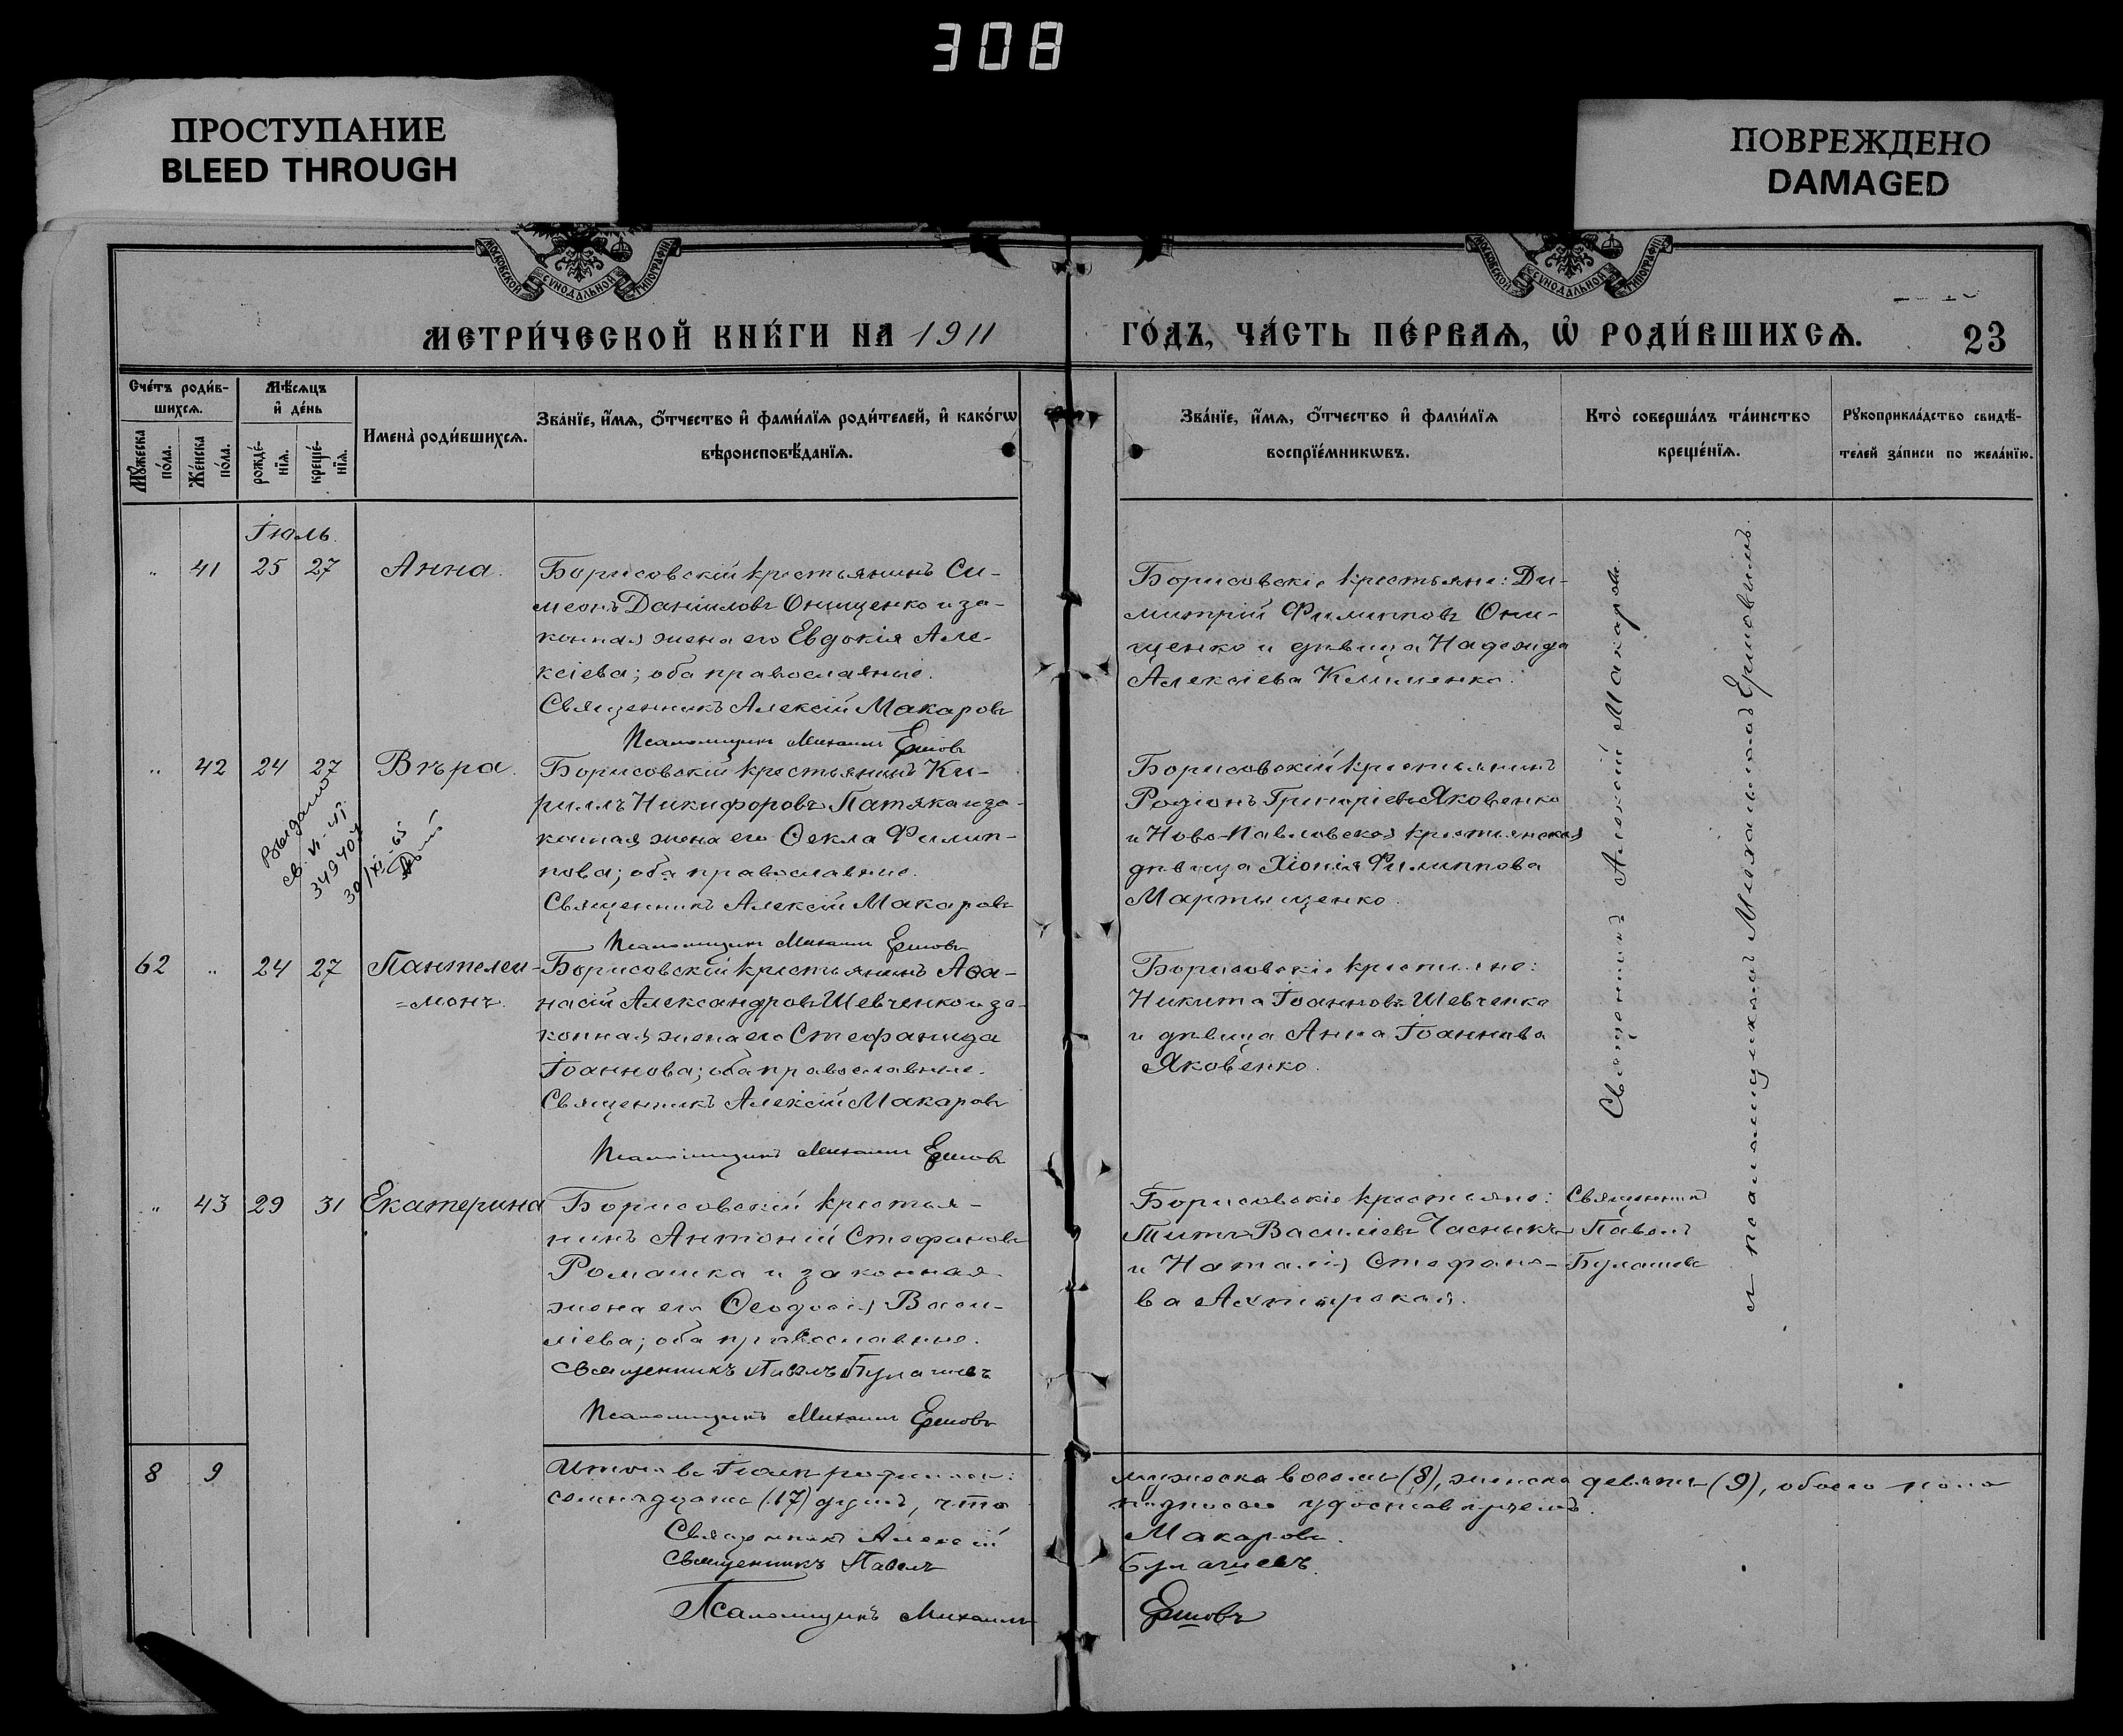 308
ПРОСТУПАНИЕ
BLEED THROUGH
ПОВРЕЖДЕНО
DAMAGED
МОСКОВСКОЙ СУНОДАЛЬНОЙ ТИПОГРАФІИ
МОСКОВСКОЙ СУНОДАЛЬНОЙ ТИПОГРАФІИ
МЕТРИ́ЧЕСКОЙ КНИ́ГИ НА 1911
ГО́ДЪ, ЧА́СТЬ ПЕ́РВАѦ, Ѡ҆ РОДИ́ВШИХСѦ.
23
Сче́тъ роди́в-
шихсѧ.
Мꙋ́жеска по́ла.
Же́нска по́ла.
Мѣ́сѧцъ
и҆ де́нь
рожде́-
нїѧ.
креще́-
нїѧ.
Имена̀ роди́вшихсѧ.
Зва́нїе, и҆́мѧ, ѻ҆́тчество и҆ фами́лїѧ роди́телей, и҆ како́гѡ
вѣроисповѣ́данїѧ.
Зва́нїе, и҆́мѧ, ѻ҆́тчество и҆ фами́лїѧ
воспрїе́мникѡвъ.
Кто̀ соверша́лъ та́инство
креще́нїѧ.
Рꙋкоприкла́дство свидѣ́-
телей за́писи по жела́нїю.
Іюль.
" 41 25 27 Анна.
Борисовскій крестьянинъ Си-
меонъ Даніиловъ Онищенко и за-
конная жена его Евдокія Але-
ксіева; оба православные.
Священникъ Алексій Макаровъ
Псаломщикъ Михаилъ Ершовъ
Борисовскіе крестьяне: Ди-
митрій Филипповъ Они-
щенко и дѣвица Надежда
Алексіева Клименко.
" 42 24 27 Вѣра.
Борисовскій крестьянинъ Ки-
риллъ Никифоровъ Патяка и за-
конная жена его Ѳекла Филип-
пова; оба православные.
Священникъ Алексій Макаровъ
Псаломщикъ Михаилъ Ершовъ
Борисовскій крестьянинъ
Родіонъ Григоріевъ Яковенко
и Ново-Павловская крестьянская
дѣвица Хіонія Филиппова
Мартыщенко.
Выдано
св. VI-
349407
30/XI-65
62 " 24 27 Пантелеи-
=монъ.
Борисовскій крестьянинъ Аѳа-
насій Александровъ Шевченко и за-
конная жена его Стефанида
Іоаннова; оба православные.
Священникъ Алексій Макаровъ
Псаломщикъ Михаилъ Ершовъ
Борисовскіе крестьяне:
Никита Іоанновъ Шевченко
и дѣвица Анна Іоаннова
Яковенко.
Священникъ Алексій Макаровъ
и псаломщикомъ Михаиломъ Ершовымъ.
" 43 29 31 Екатерина
Борисовскій крестья-
нинъ Антоній Стефановъ
Ромашка и законная
жена его Ѳеодосія Васи-
ліева; оба православные.
Священникъ Павелъ Булашевъ
Псаломщикъ Михаилъ Ершовъ
Борисовскіе крестьяне:
Титъ Василіевъ Часныкъ
и Наталія Стефано-
ва Ахтырская.
Священникъ
Павелъ
Булашевъ
8 9
Итого въ Іюлѣ родилось: мужеска восемь (8), женска девять (9), обоего пола
семнадцать (17) душъ, что подписью удостовѣряемъ.
Священникъ Алексій Макаровъ.
Священникъ Павелъ Булашевъ.
Псаломщикъ Михаилъ Ершовъ